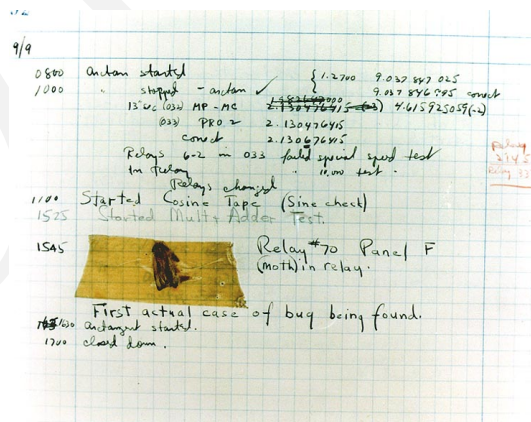 9/9
0800 antan started { 1.2700 9.037 847 025
1000 " stopped - antan ✓ 9.037 846 995 conect
13"uc (032) MP - MC 2.130476415 (-3) 4.615925059(-2)
(033) PRO 2 2. 130476415
conect 2. 130676415
Relays 6-2 in 033 failed special speed test
in Relay " 10,000 test.
Relays changed
Relay
2145
Relay 33
1100 Started Cosine Tape (Sine check)
1525 Started Mult+ Adder Test.
1545 Relay #70 Panel F
(moth) in relay.
First actual case of bug being found.
1630 antangent started.
1700 closed down.